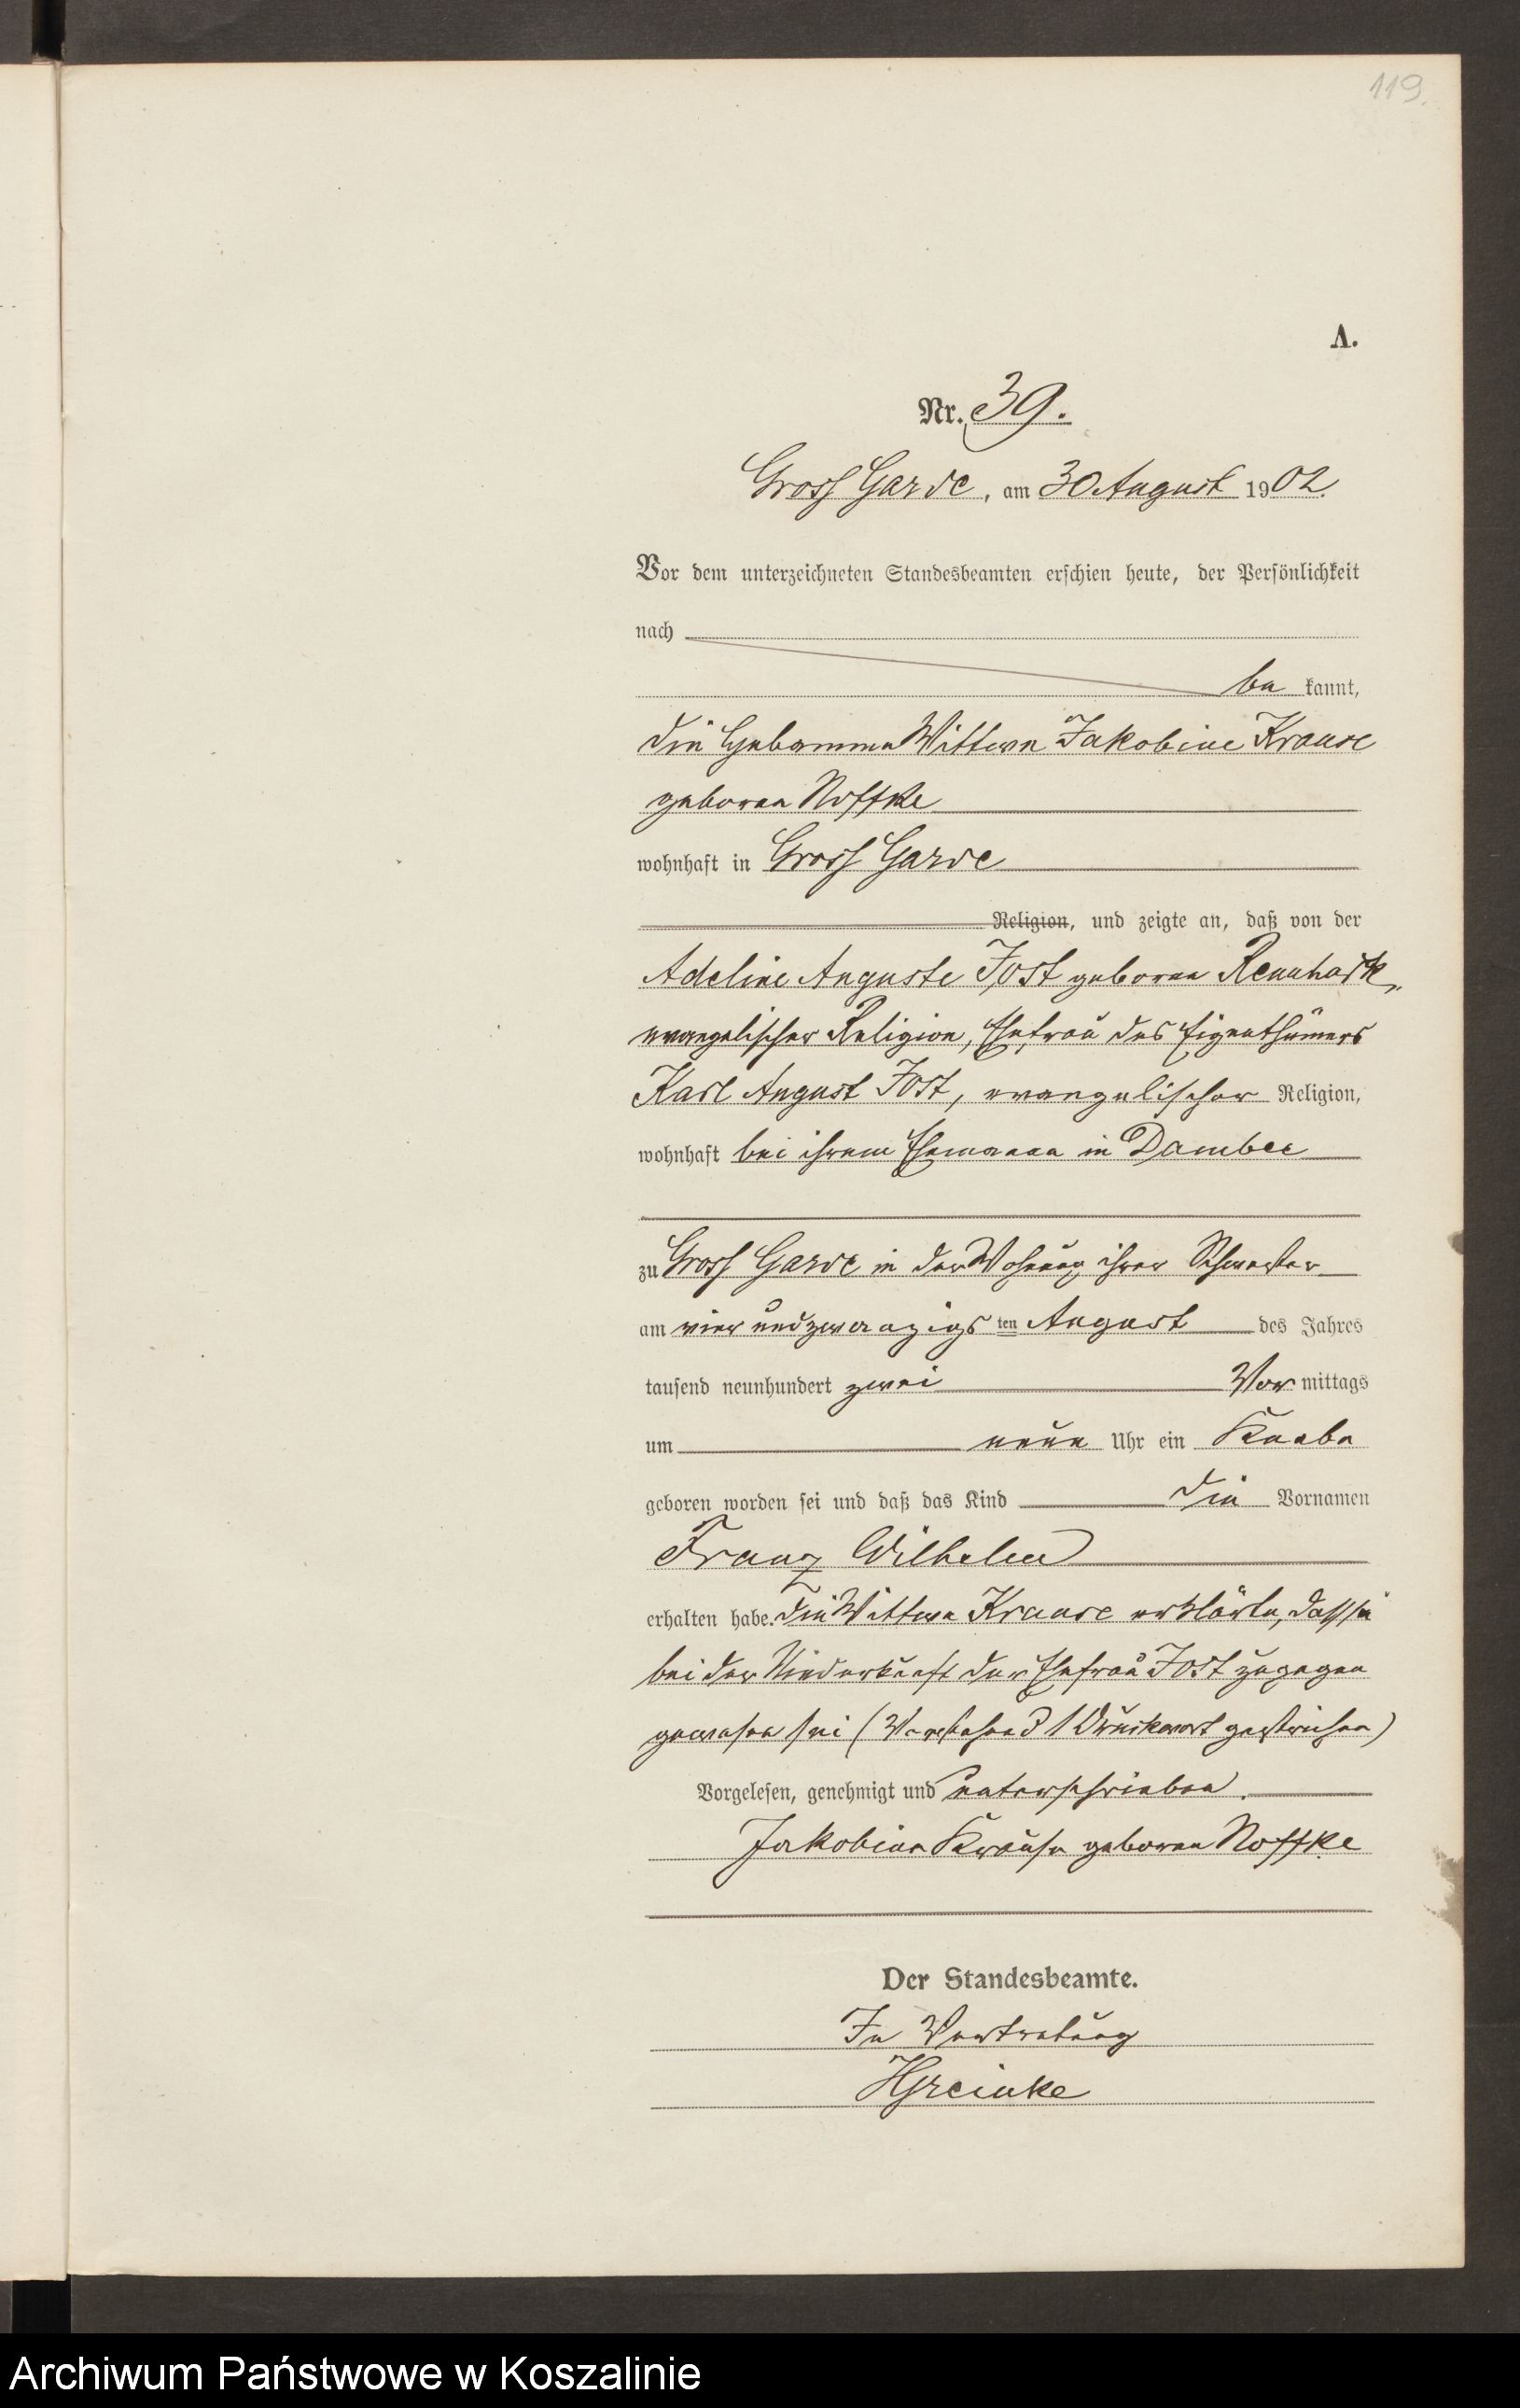 119.
A.
Nr. 39.
Gross Garde, am 30 August 1902.
Vor dem unterzeichneten Standesbeamten erschien heute, der Persönlichkeit
nach
be kannt,
die Hebamme Wittwe Jakobine Krause
geborene Noffke
wohnhaft in Gross Garde
Religion, und zeigte an, daß von der
Adeline Auguste Jost geborene
evangelischer Religion, Ehefrau des Eigenthümers
Karl August Jost, evangelischer Religion,
wohnhaft bei ihrem Ehemann in Dambee
zu Gross Garde in der Wohnung ihrer Schwester
am vier und zwanzigs ten August des Jahres
tausend neunhundert zwei Vor mittags
um neun Uhr ein Knabe
geboren worden sei und daß das Kind die Vornamen
Franz Wilhelm
erhalten habe. Die Wittwe Krause erklärte, dass sie
bei der Niederkunft der Ehefrau Jost zugegen
gewesen sei (Vorstehend 1 Druckwort gestrichen)
Vorgelesen, genehmigt und unterschrieben.
Jakobine Krause geborene Noffke
Der Standesbeamte.
In Vertretung
Archiwum Państwowe w Koszalinie